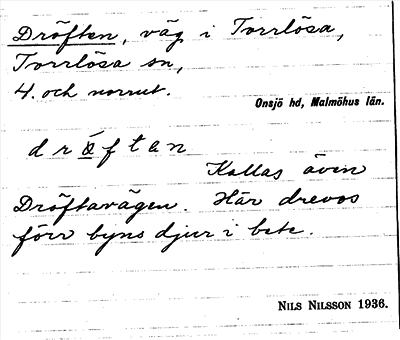 Dröften, väg i Torrlösa,
Torrlösa sn,
4. och norrut.
Onsjö hd, Malmöhus län.
d r ǿ f t e n
Kallas även
Dröftavägen. Här drevos
förr byns djur i bete.
NILS NILSSON 1936.